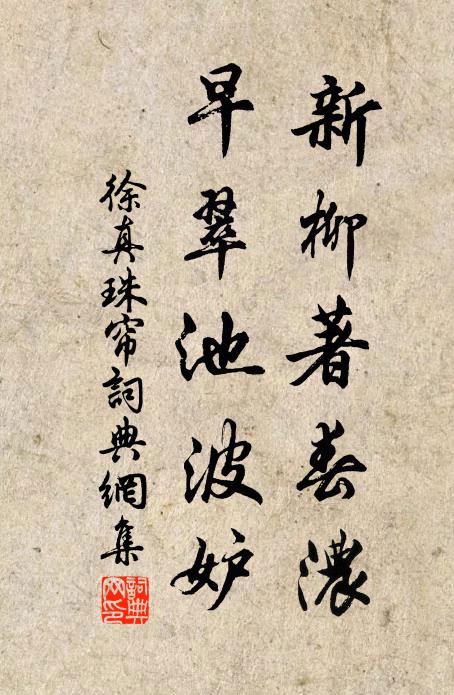 新柳著春濃
早翠池波妒
徐真珠帘詞典網集
詞典網印